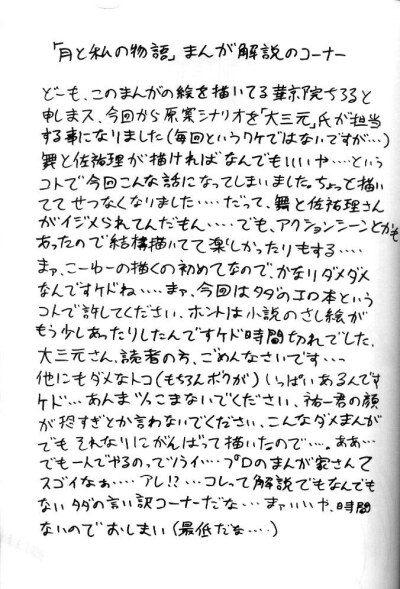 「月と私の物語」まんが解説のコーナー
どーも、このまんがの絵を描いてる葉京院ちろると
申しまス、今回から原案シナリオを「大三元」氏が担当
する事になりました(毎回というワケではないですが…)
舞と佐祐理が描ければなんでもいいや‥‥という
コトで今回こんな話になってしまいました。ちょっと描い
ててせつなくなりました‥‥だって、舞と佐祐理さん
がイジメられてんだもん‥‥でも、アクションシーンとかも
あったので結構描いてて楽しかったりもする‥‥
まァ、こーゆーの描くの初めてなので、かなりダメダメ
なんですケドね‥‥まァ、今回はタダのエロ本という
コトで許してください、ホントは小説のさし絵が
もう少しあったりしたんですケド時間切れでした、
大三元さん、読者の方、ごめんなさいです‥‥っ
他にもダメなトコ(もちろんボクが)いっぱいあるんです
ケド‥‥あんまツっこまないでください、祐一君の顔
が恐すぎとか言わないでください、こんなダメまんが
でもそれなりにがんばって描いたので‥‥。ああ‥
でも一人でやるのってツライ‥‥プロのまんが家さんて
スゴイなぁ‥‥アレ!?‥‥コレって解説でもなんでも
ないタダの言い訳コーナーだな‥‥まァいいや、時間
ないのでおしまい(最低だな‥‥)